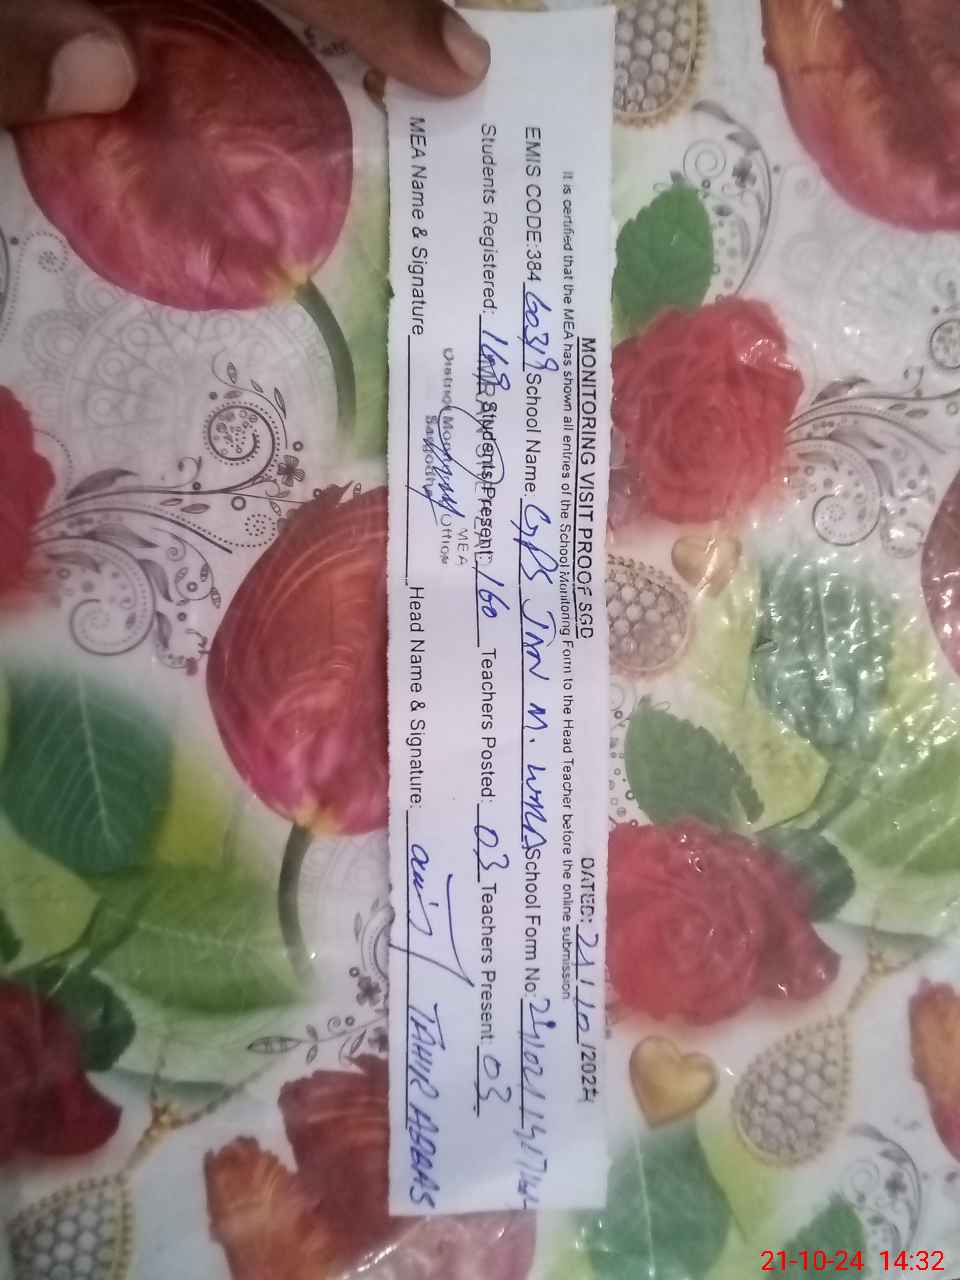 MONITORING VISIT PROOF SGD DATED: 21/10/2024
It is certified that the MEA has shown all entries of the School Monitoring Form to the Head Teacher before the online submission
EMIS CODE:384 60319 School Name: GPS JAN M. WALA School Form No:
Students Registered: 168 Students Present: 160 Teachers Posted: 03 Teachers Present: 03
MEA
District Monitoring Office
Sargodha
MEA Name & Signature Head Name & Signature: TAHIR ABBAS
21-10-24 14:32